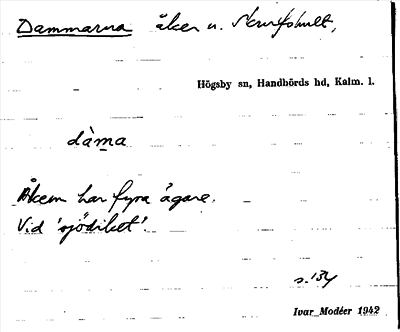 Dammarna åker u. Skruvshult,
Högsby sn, Handbörds hd, Kalm. l.
dàma
Åkern har fyra ägare.
Vid 'sjödiket'.
s. 134
Ivar Modéer 1942